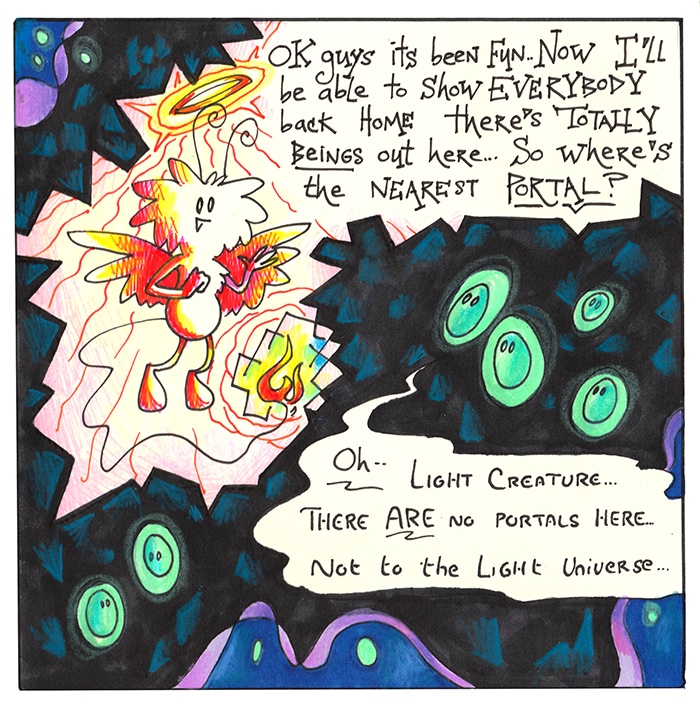 OK guys its been Fun.. Now I'll
be able to Show EVERYBODY
back HOME there's TOTALLY
BEINGS out here... So where's
the NEAREST PORTAL?
Oh.. LIGHT CREATURE...
THERE ARE NO PORTALS HERE...
Not to the LIGHT Universe...